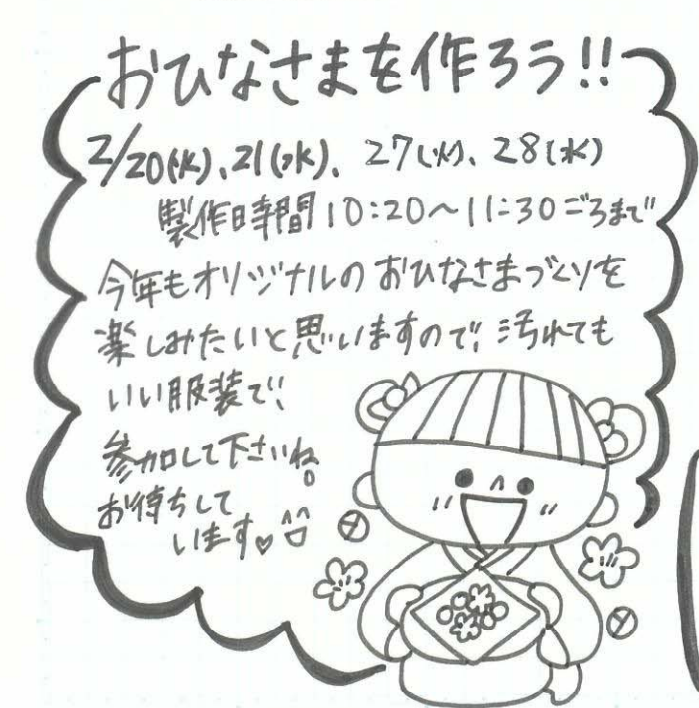 おひなさまを作ろう!!
2/20(火)、21(水)、27(火)、28(水)
製作時間10:20～11:30ごろまで
今年もオリジナルのおひなさまづくりを
楽しみたいと思いますので、汚れても
いい服装で、
参加して下さいね。
お待ちして
います♡